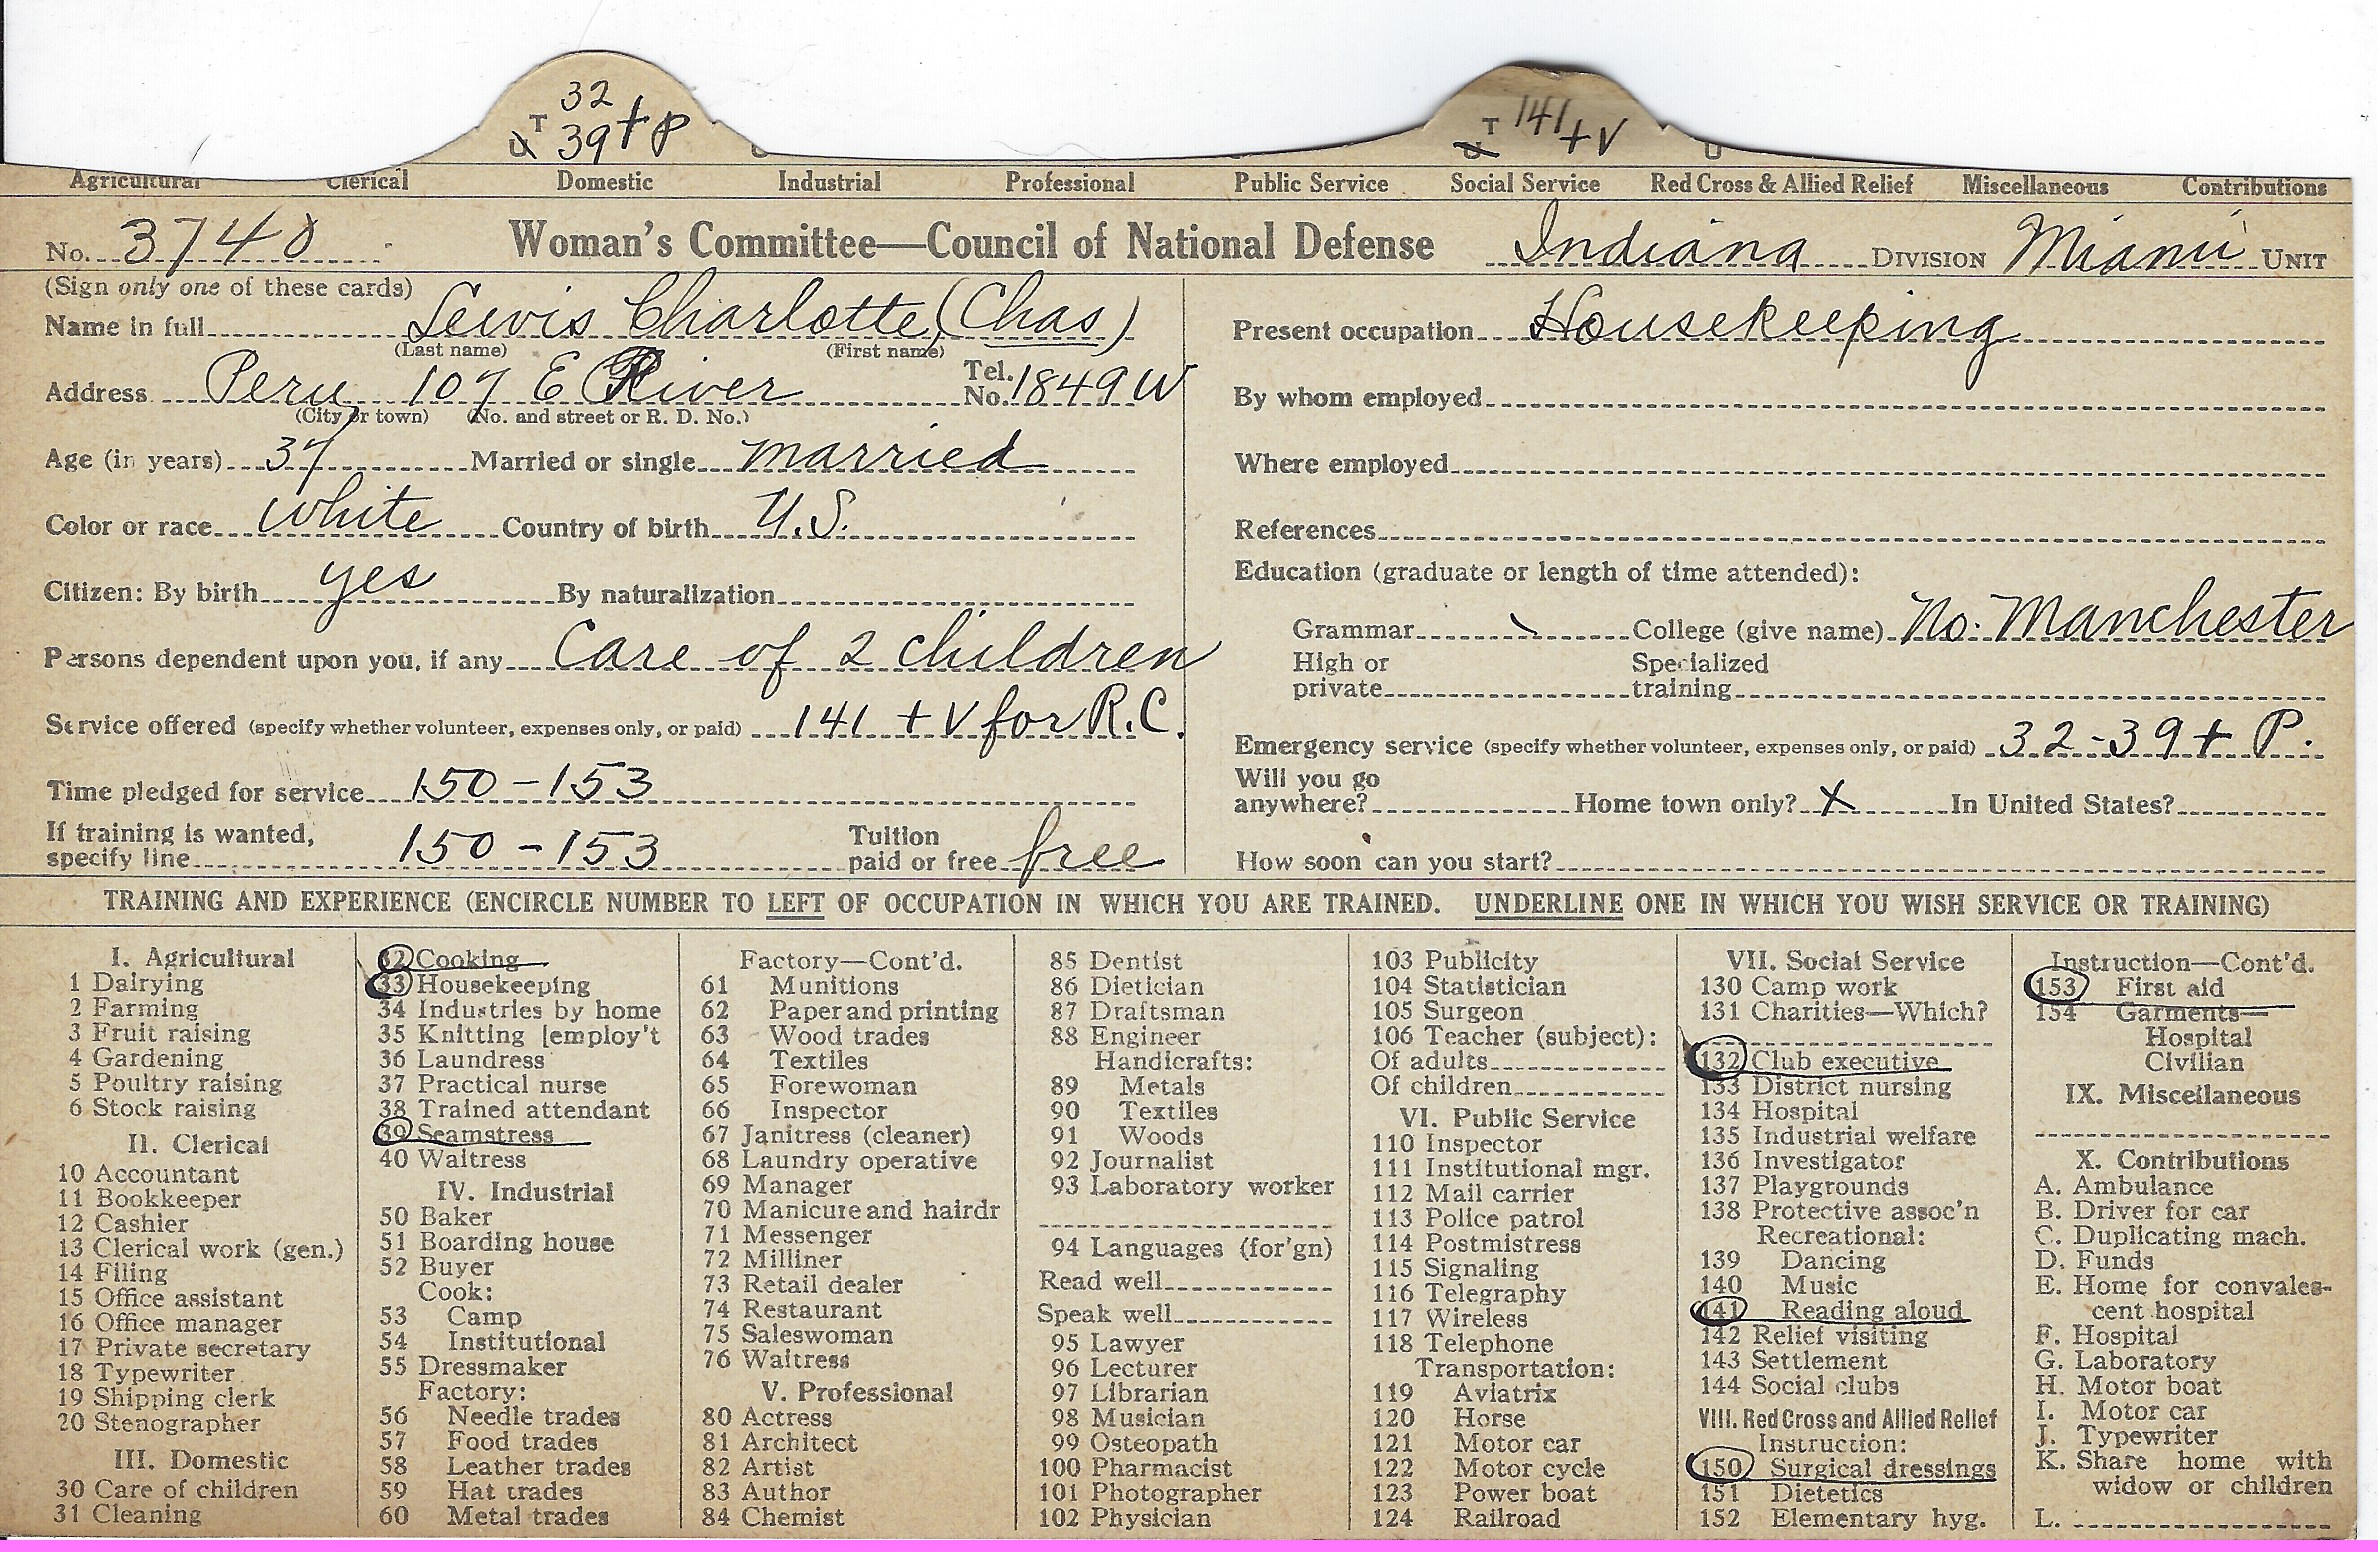 32
T 39 + P
U
T 141
U + V
U
Agricultural Clerical Domestic Industrial Professional Public Service Social Service Red Cross & Allied Relief Miscellaneous Contributions
No. 3740 Woman's Committee—Council of National Defense Indiana DIVISION Miami UNIT
(Sign only one of these cards)
Name in full Lewis Charlotte, (Chas)
(Last name) (First name)
Address Peru 107 E River Tel. No. 1849 W
(City or town) (No. and street or R. D. No.)
Age (in years) 37 Married or single married
Color or race white Country of birth U.S.
Citizen: By birth yes By naturalization
Persons dependent upon you, if any Care of 2 children
Service offered (specify whether volunteer, expenses only, or paid) 141 + V for R.C.
Time pledged for service 150 - 153
If training is wanted,
specify line 150 - 153 Tuition paid or free free
Present occupation Housekeeping
By whom employed
Where employed
References
Education (graduate or length of time attended):
Grammar \ College (give name) No. Manchester
High or private Specialized training
Emergency service (specify whether volunteer, expenses only, or paid) 32-39 + P.
Will you go
anywhere? Home town only? X In United States?
How soon can you start?
TRAINING AND EXPERIENCE (ENCIRCLE NUMBER TO LEFT OF OCCUPATION IN WHICH YOU ARE TRAINED. UNDERLINE ONE IN WHICH YOU WISH SERVICE OR TRAINING)
I. Agricultural
1 Dairying
2 Farming
3 Fruit raising
4 Gardening
5 Poultry raising
6 Stock raising
II. Clerical
10 Accountant
11 Bookkeeper
12 Cashier
13 Clerical work (gen.)
14 Filing
15 Office assistant
16 Office manager
17 Private secretary
18 Typewriter
19 Shipping clerk
20 Stenographer
III. Domestic
30 Care of children
31 Cleaning
32 Cooking
33 Housekeeping
34 Industries by home
35 Knitting [employ't
36 Laundress
37 Practical nurse
38 Trained attendant
39 Seamstress
40 Waitress
IV. Industrial
50 Baker
51 Boarding house
52 Buyer
Cook:
53 Camp
54 Institutional
55 Dressmaker
Factory:
56 Needle trades
57 Food trades
58 Leather trades
59 Hat trades
60 Metal trades
Factory—Cont'd.
61 Munitions
62 Paper and printing
63 Wood trades
64 Textiles
65 Forewoman
66 Inspector
67 Janitress (cleaner)
68 Laundry operative
69 Manager
70 Manicure and hairdr
71 Messenger
72 Milliner
73 Retail dealer
74 Restaurant
75 Saleswoman
76 Waitress
V. Professional
80 Actress
81 Architect
82 Artist
83 Author
84 Chemist
85 Dentist
86 Dietician
87 Draftsman
88 Engineer
Handicrafts:
89 Metals
90 Textiles
91 Woods
92 Journalist
93 Laboratory worker
94 Languages (for'gn)
Read well
Speak well
95 Lawyer
96 Lecturer
97 Librarian
98 Musician
99 Osteopath
100 Pharmacist
101 Photographer
102 Physician
103 Publicity
104 Statistician
105 Surgeon
106 Teacher (subject):
Of adults
Of children
VI. Public Service
110 Inspector
111 Institutional mgr.
112 Mail carrier
113 Police patrol
114 Postmistress
115 Signaling
116 Telegraphy
117 Wireless
118 Telephone
Transportation:
119 Aviatrix
120 Horse
121 Motor car
122 Motor cycle
123 Power boat
124 Railroad
VII. Social Service
130 Camp work
131 Charities—Which?
132 Club executive
133 District nursing
134 Hospital
135 Industrial welfare
136 Investigator
137 Playgrounds
138 Protective assoc'n
Recreational:
139 Dancing
140 Music
141 Reading aloud
142 Relief visiting
143 Settlement
144 Social clubs
VIII. Red Cross and Allied Relief
Instruction:
150 Surgical dressings
151 Dietetics
152 Elementary hyg.
Instruction—Cont'd.
153 First aid
154 Garments—
Hospital
Civilian
IX. Miscellaneous
X. Contributions
A. Ambulance
B. Driver for car
C. Duplicating mach.
D. Funds
E. Home for convales-
cent hospital
F. Hospital
G. Laboratory
H. Motor boat
I. Motor car
J. Typewriter
K. Share home with
widow or children
L.